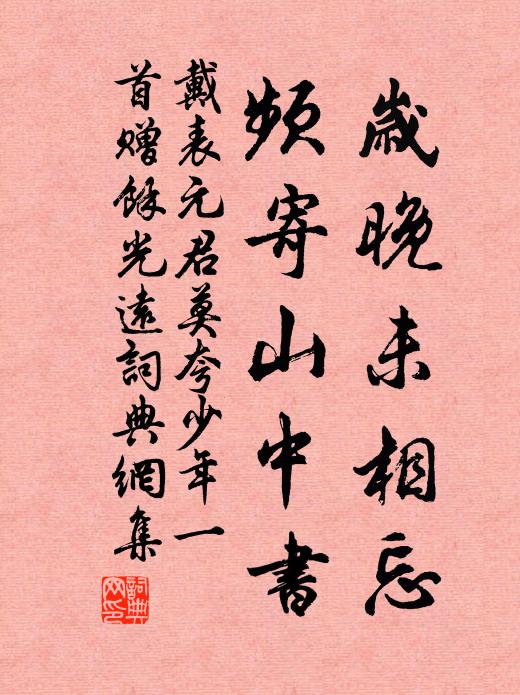 歲晚未相忘
頻寄山中書
戴表元君莫夸少年一
首贈餘光遠詞典網集
詞典網印